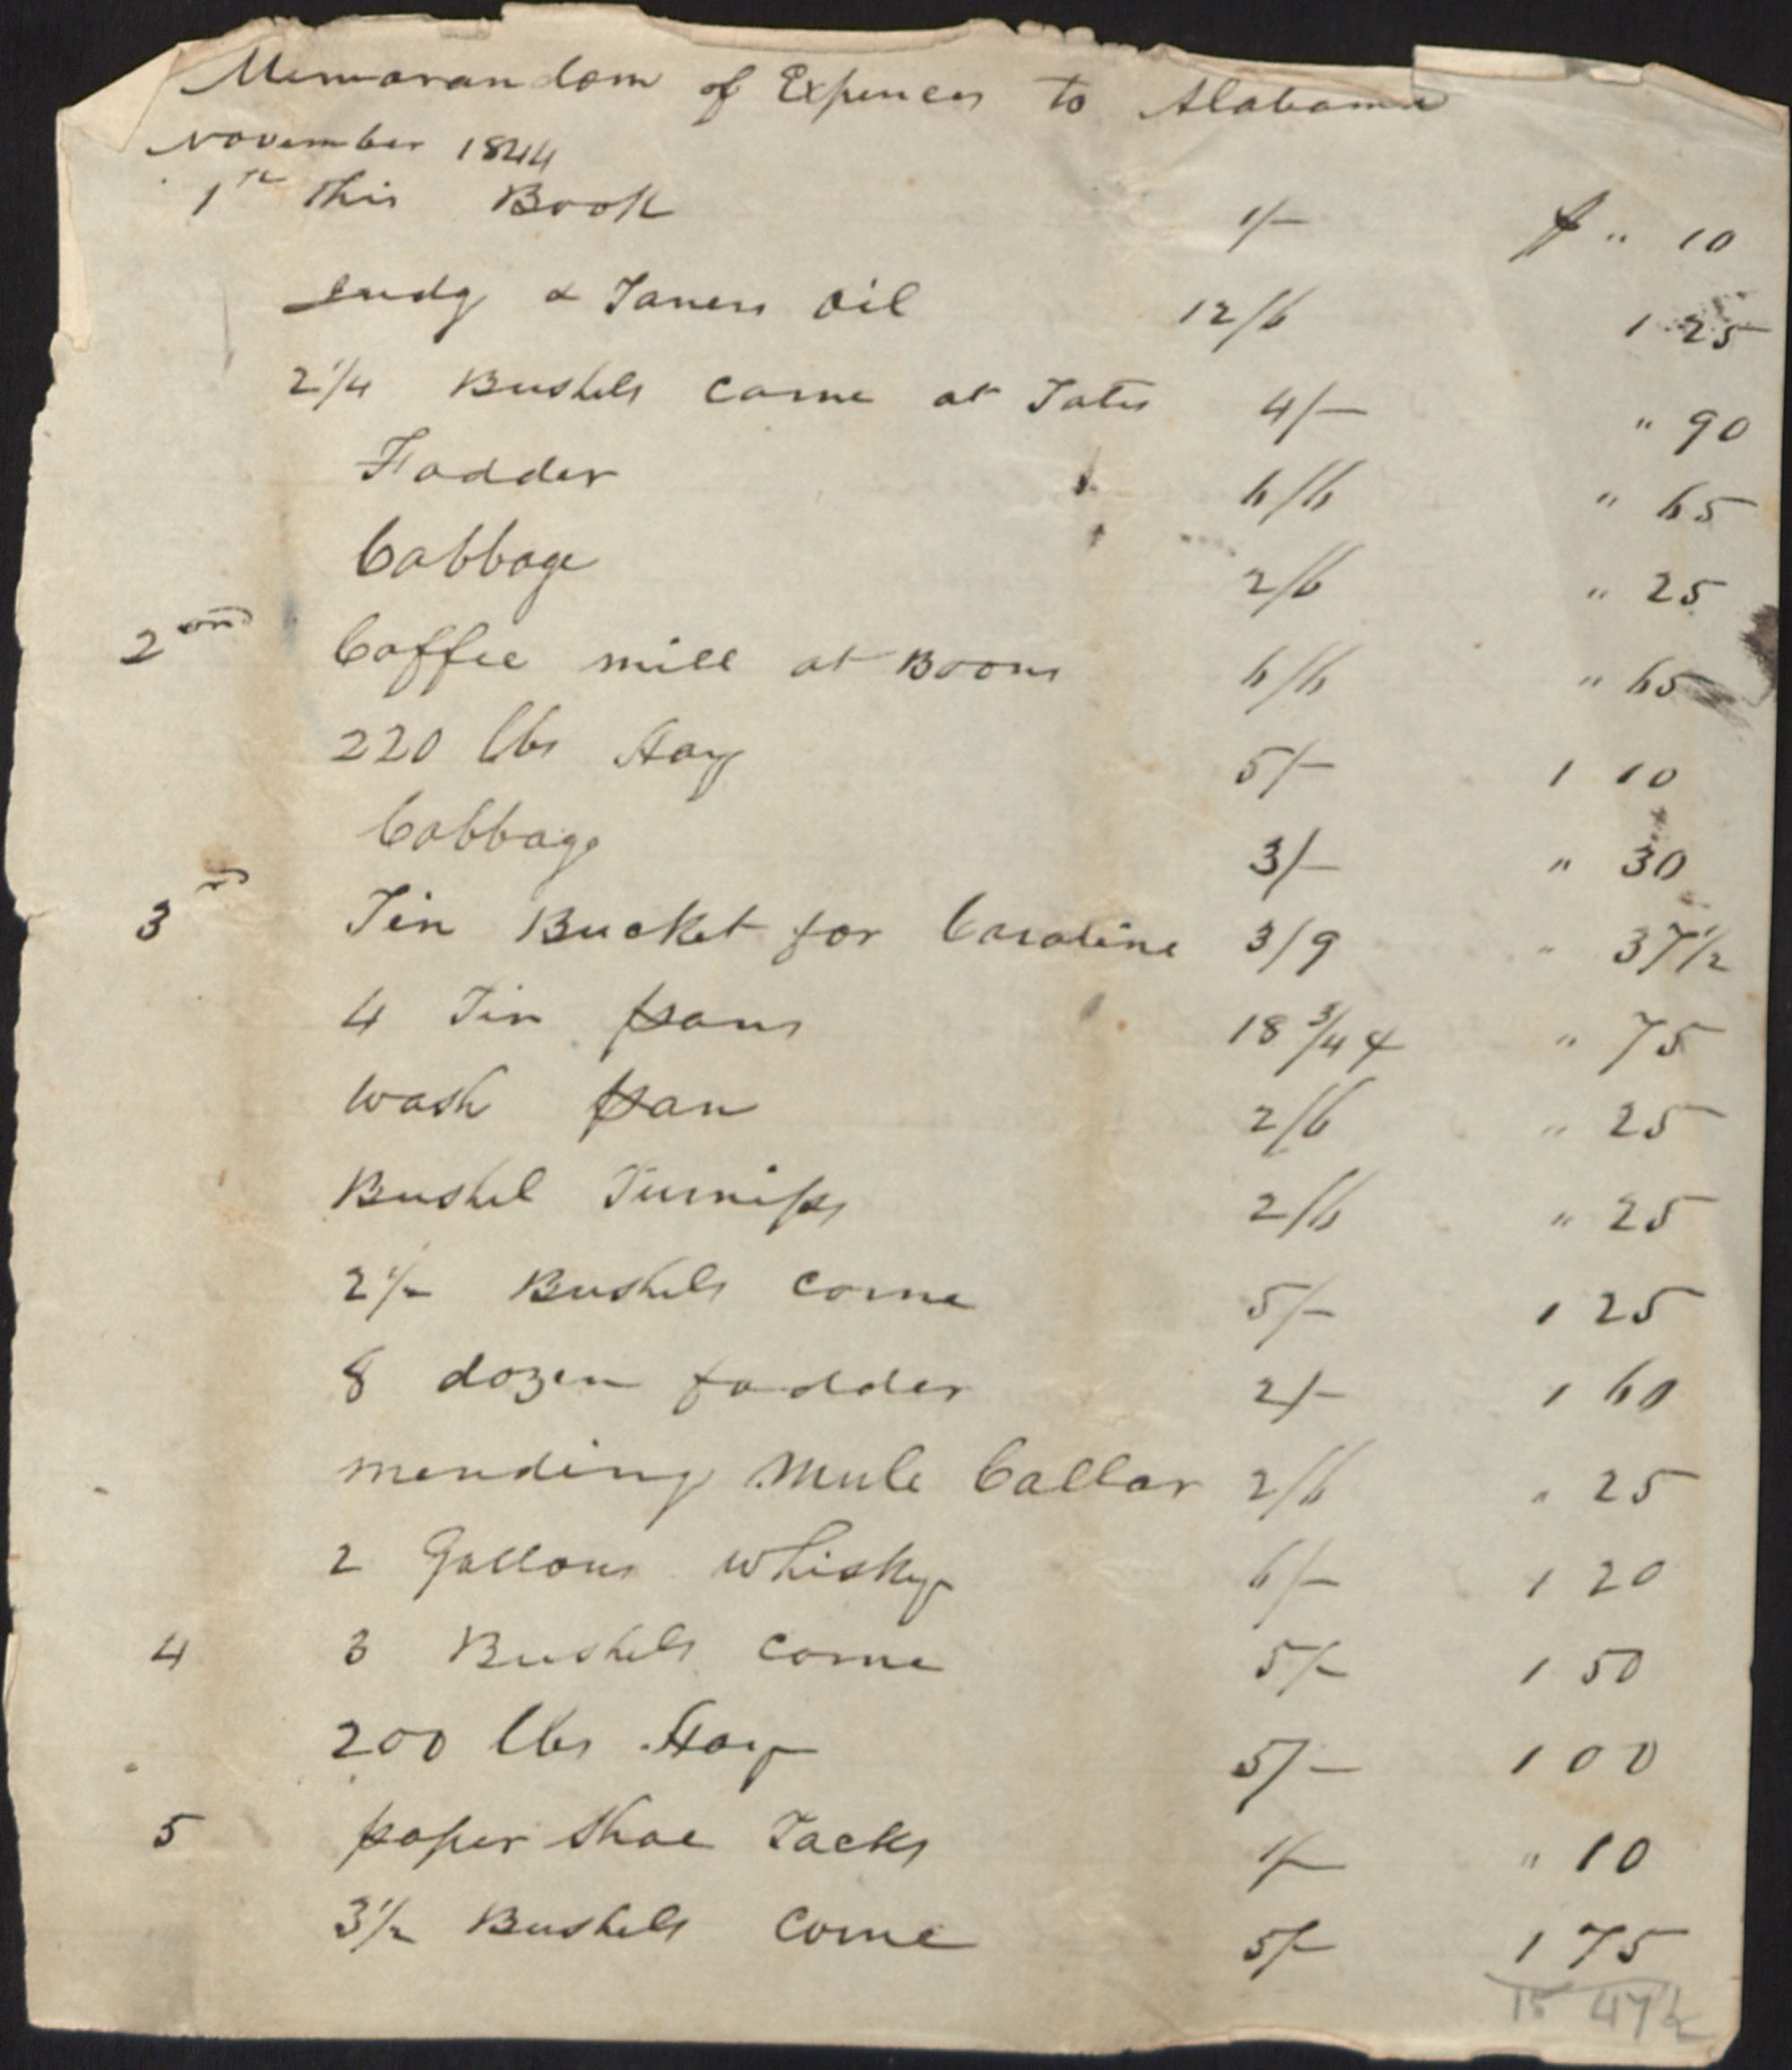 Memorandom of Expences to Alabama
November 1844
1st This Book 1/- $ " 10
& Taners Oil 12/6 1 25
2 1/4 Bushels corne at Tates 4/- " 90
Fodder 6/6 " 65
Cabbage 2/6 " 25
2ond Coffee mill at Boons 6/6 " 65
220 lbs Hay 5/- 1 10
Cabbage 3/- " 30
3rd Tin Bucket for Caroline 3/9 " 37 1/2
4 Tin pans 18 3/4 ¢ " 75
wash pan 2/6 " 25
Bushel Turnips 2/6 " 25
2 1/2 Bushels corne 5/- 1 25
8 dozen fodder 2/- 1 60
mending mule Collar 2/6 " 25
2 Gallons whisky 6/- 1 20
4 3 Bushels corne 5/- 1 50
200 lbs Hay 5/- 1 00
5 paper Shoe Tacks 1/- " 10
3 1/2 Bushels Corne 5/- 1 75
15 47 1/2